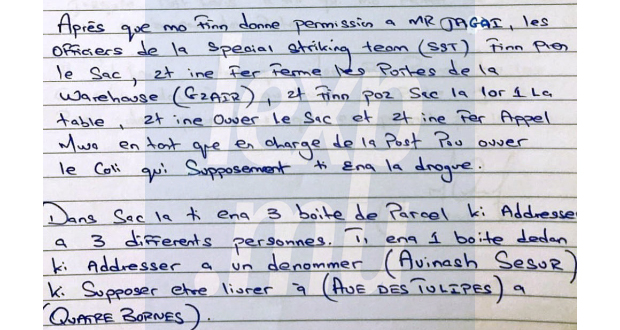 Après que mo Finn donne permissin a MR JAGAI, les
OFFiciers de la Special striking team (SST) Finn Pren
le Sac, zt ine Fer Ferme les Portes de la
Warehouse (GZAIR), zt Finn poz Sac la lor 1 La
table, zt ine Ouver le Sac et zt ine Fer Appel
Mwa en tant que en charge de la Post Pou ouver
le Coli qui Supposement ti Ena la drogue.
Dans Sac la ti ena 3 boite de Parcel ki Addresse
a 3 differents personnes. Ti ena 1 boite dedan
ki Addresser a un denommer (Avinash Sesur)
ki Supposer etre livrer a (AVE DES TULIPES) a
(QUATRE BORNES).
lexp
mu